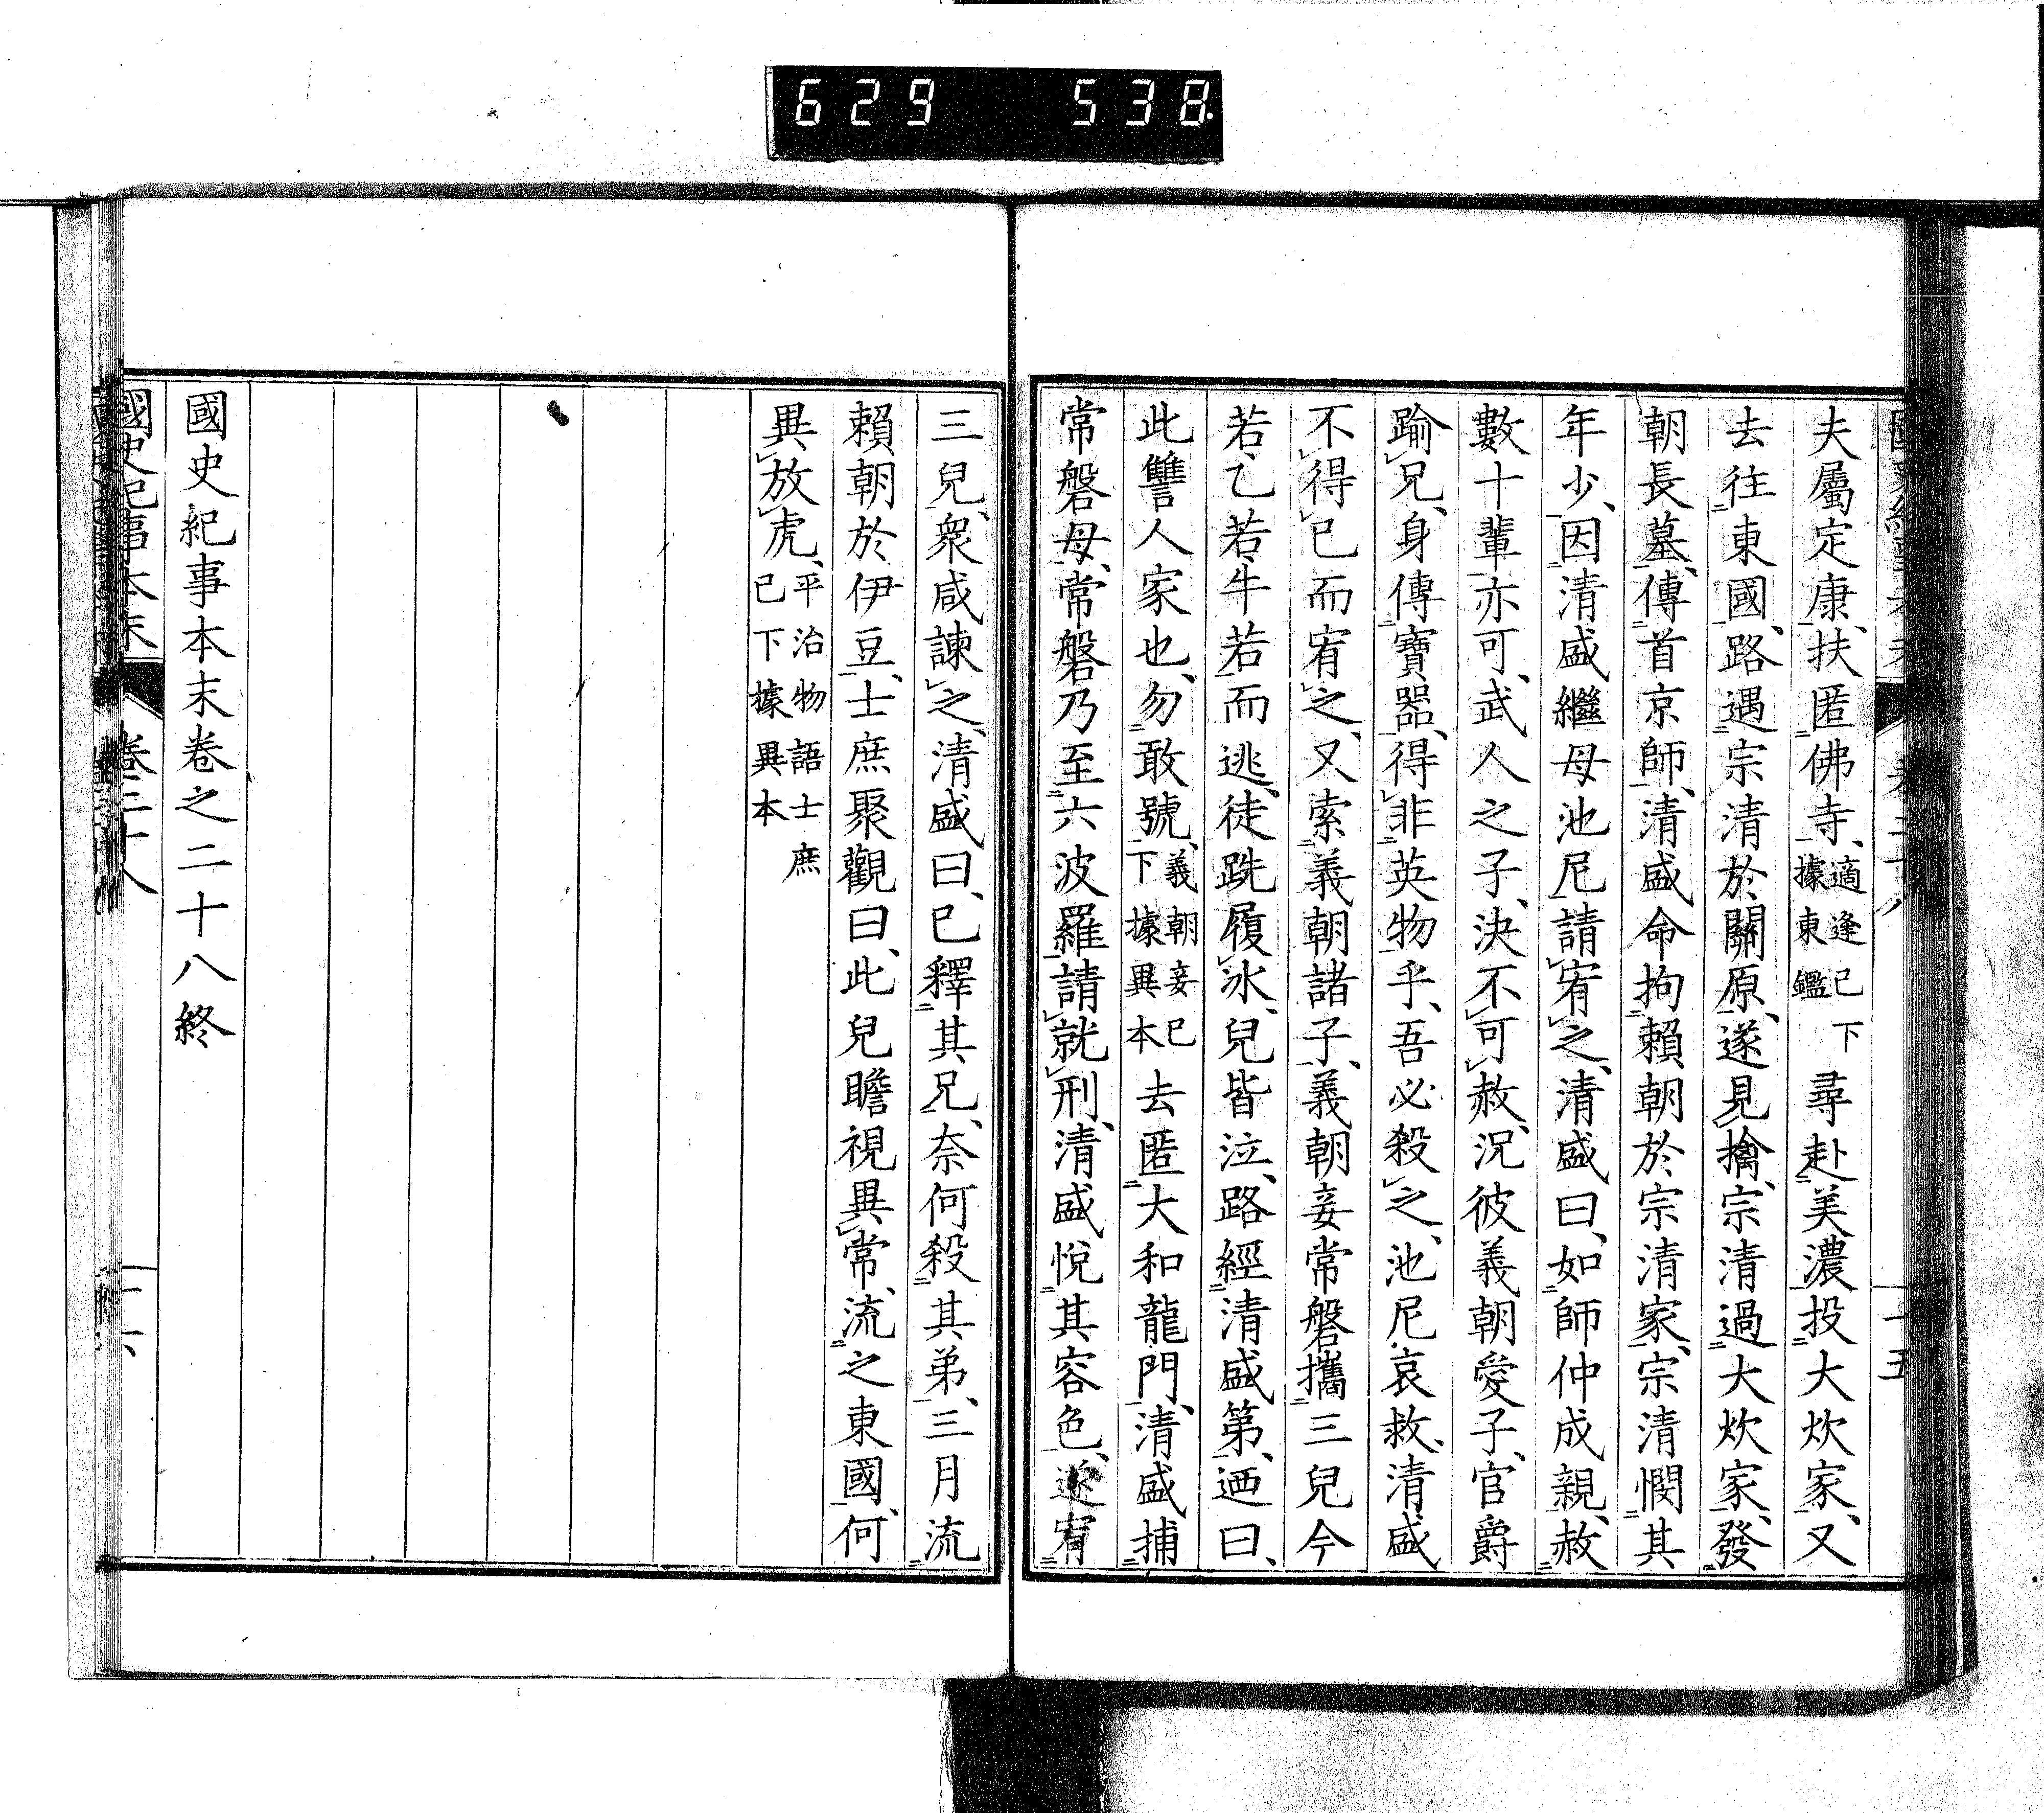 629 538.
夫屬定康、扶匿佛寺、適逢已下據東鑑尋赴美濃投大炊家、又
去往東國、路遇宗清於關原、遂見擒、宗清過大炊家、發
朝長墓、傳首京師、清盛命拘賴朝於宗清家、宗清憫其
年少、因清盛繼母池尼請宥之、清盛曰、如師仲成親、赦
數十輩亦可、武人之子、決不可赦、況彼義朝愛子、官爵
踰兄、身傳寶器、得非英物乎、吾必殺之、池尼哀救、清盛
不得已而宥之、又索義朝諸子、義朝妾常磐攜三兒今
若、乙若、牛若而逃、徒跣履冰、兒皆泣、路經清盛第、迺曰、
此讐人家也、勿敢號、義朝妾已下據異本去匿大和龍門、清盛捕
常磐母、常磐乃至六波羅請就刑、清盛悅其容色、遂宥
三兒、衆咸諫之、清盛曰、已釋其兄、奈何殺其弟、三月流
賴朝於伊豆、士庶聚觀曰、此兒瞻視異常、流之東國、何
異放虎、平治物語士庶已下據異本
國史紀事本末卷之二十八終
國史紀事本末 卷二十八